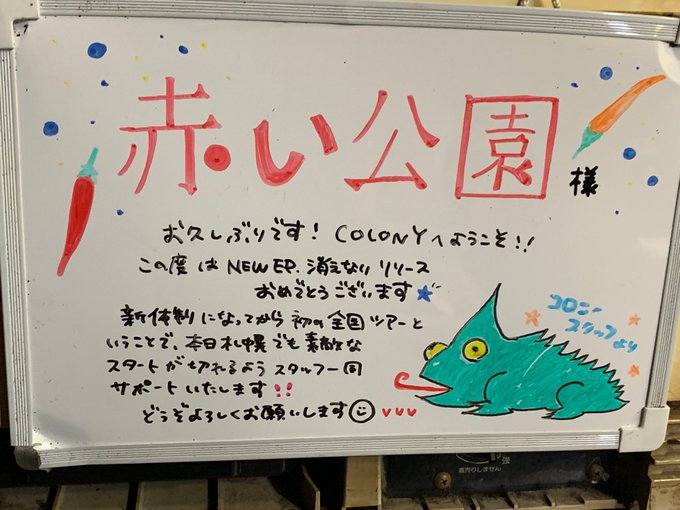 赤い公園
様
お久しぶりです! COLONYへようこそ!!
この度は NEW EP. 消えない リリース
おめでとうございます
新体制になってから初の全国ツアーと
いうことで、本日札幌でも素敵な
スタートが切れるようスタッフ一同
サポートいたします!!
どうぞよろしくお願いします
コロニー
スタッフより
強
着陸りしません